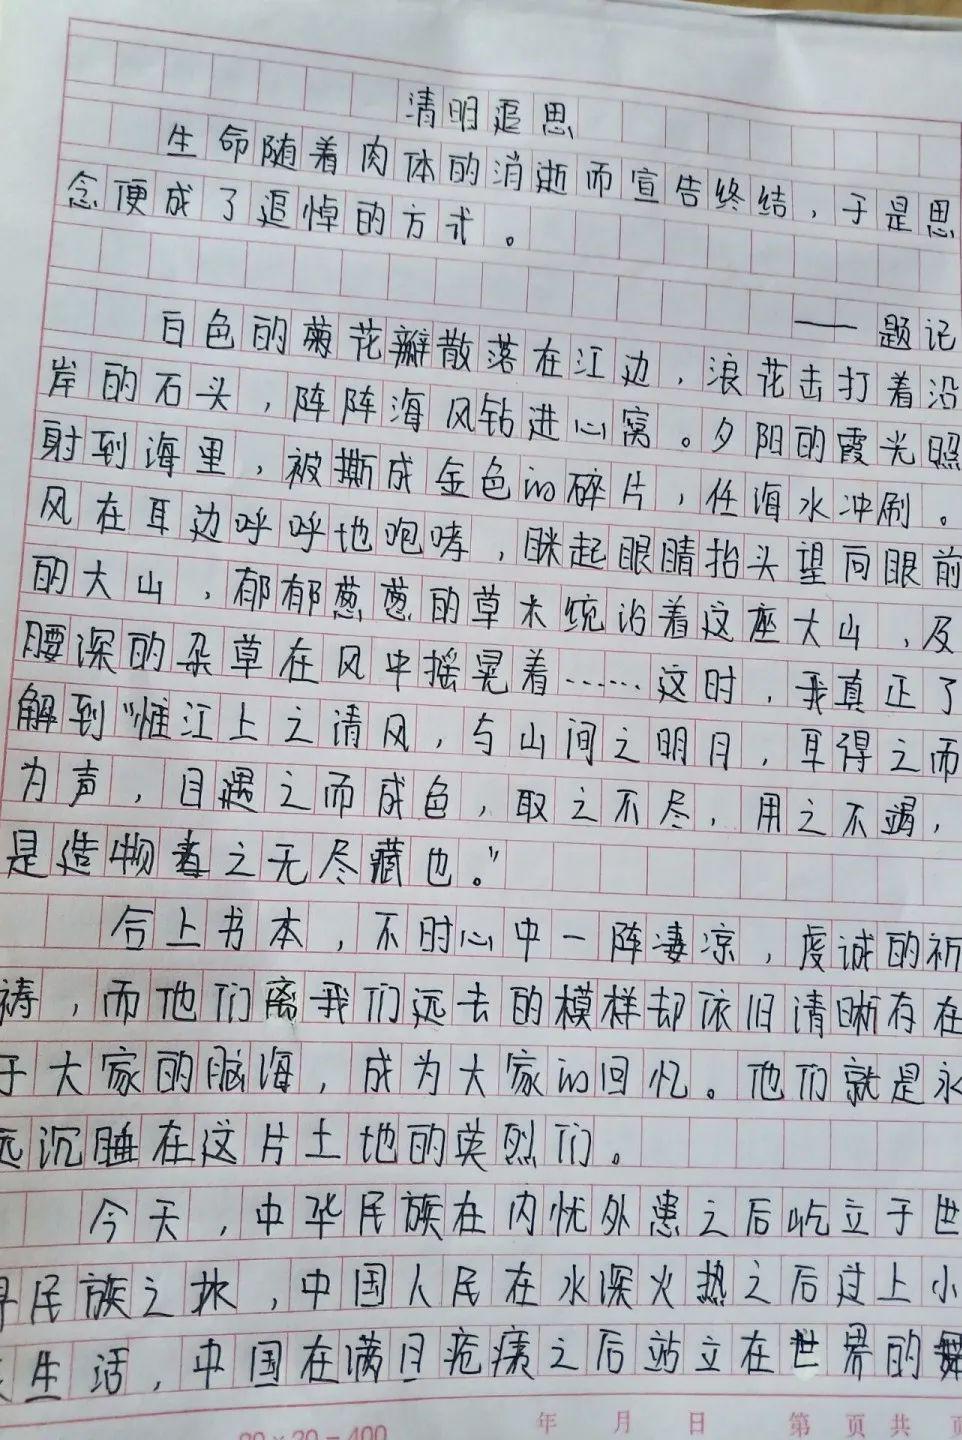 清明追思
生命随着肉体的消逝而宣告终结，于是思
念便成了追悼的方式。
——题记
白色的菊花瓣散落在江边，浪花击打着沿
岸的石头，阵阵海风钻进心窝。夕阳的霞光照
射到海里，被撕成金色的碎片，任海水冲刷。
风在耳边呼呼地咆哮，眯起眼睛抬头望向眼前
的大山，郁郁葱葱的草木统治着这座大山，及
腰深的杂草在风中摇晃着……这时，我真正了
解到“惟江上之清风，与山间之明月，耳得之而
为声，目遇之而成色，取之不尽，用之不竭，
是造物者之无尽藏也。”
合上书本，不时心中一阵凄凉，虔诚的祈
祷，而他们离我们远去的模样却依旧清晰存在
于大家的脑海，成为大家的回忆。他们就是永
远沉睡在这片土地的英烈们。
今天，中华民族在内忧外患之后屹立于世
界民族之林，中国人民在水深火热之后过上小
生活，中国在满目疮痍之后站立在世界的舞
20×20=400 年 月 日 第 页 共 页